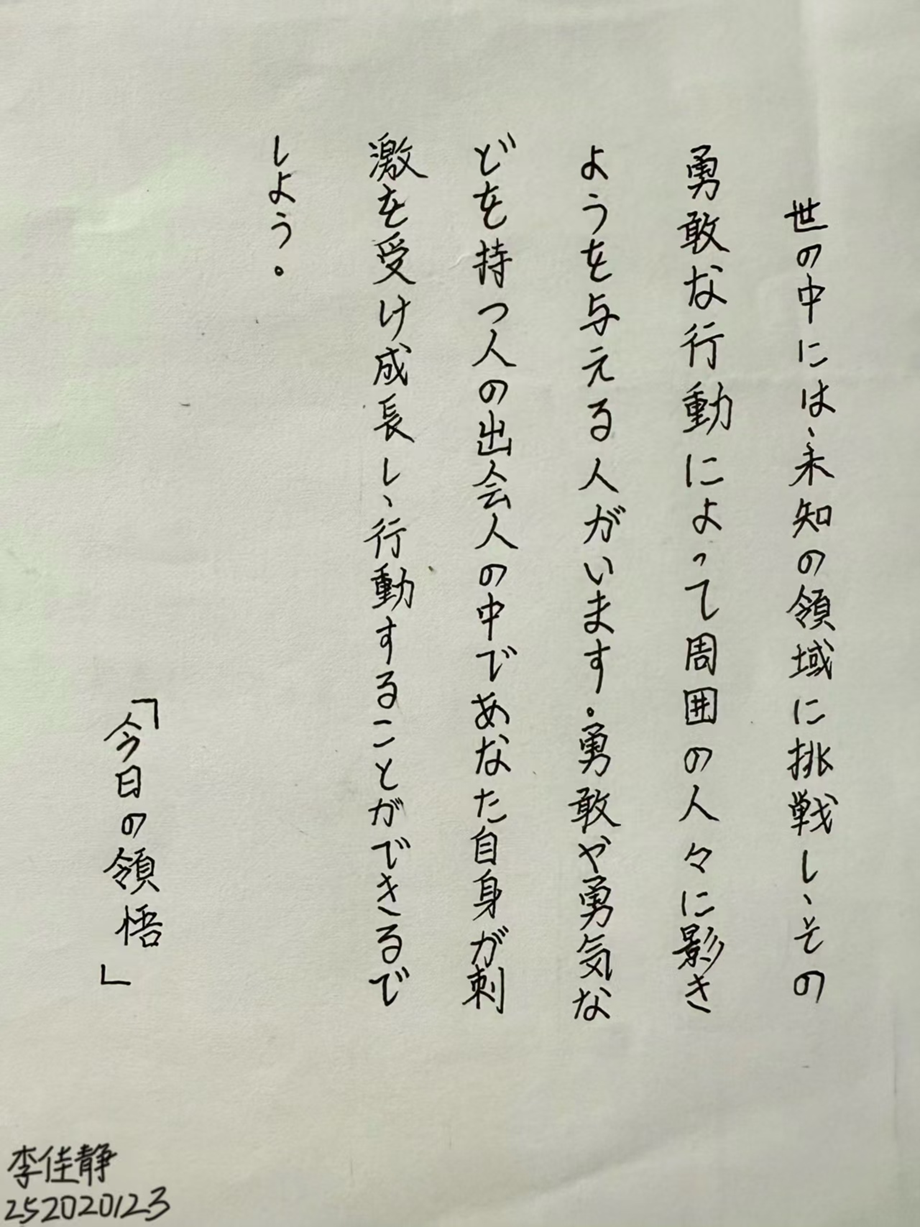 世の中には、未知の領域に挑戦し、その
勇敢な行動によって周囲の人々に影き
ようを与える人がいます。勇敢や勇気な
どを持つ人の出会人の中であなた自身が刺
激を受け成長し、行動することができるで
しょう。
「今日の領悟」
李佳静
252020123